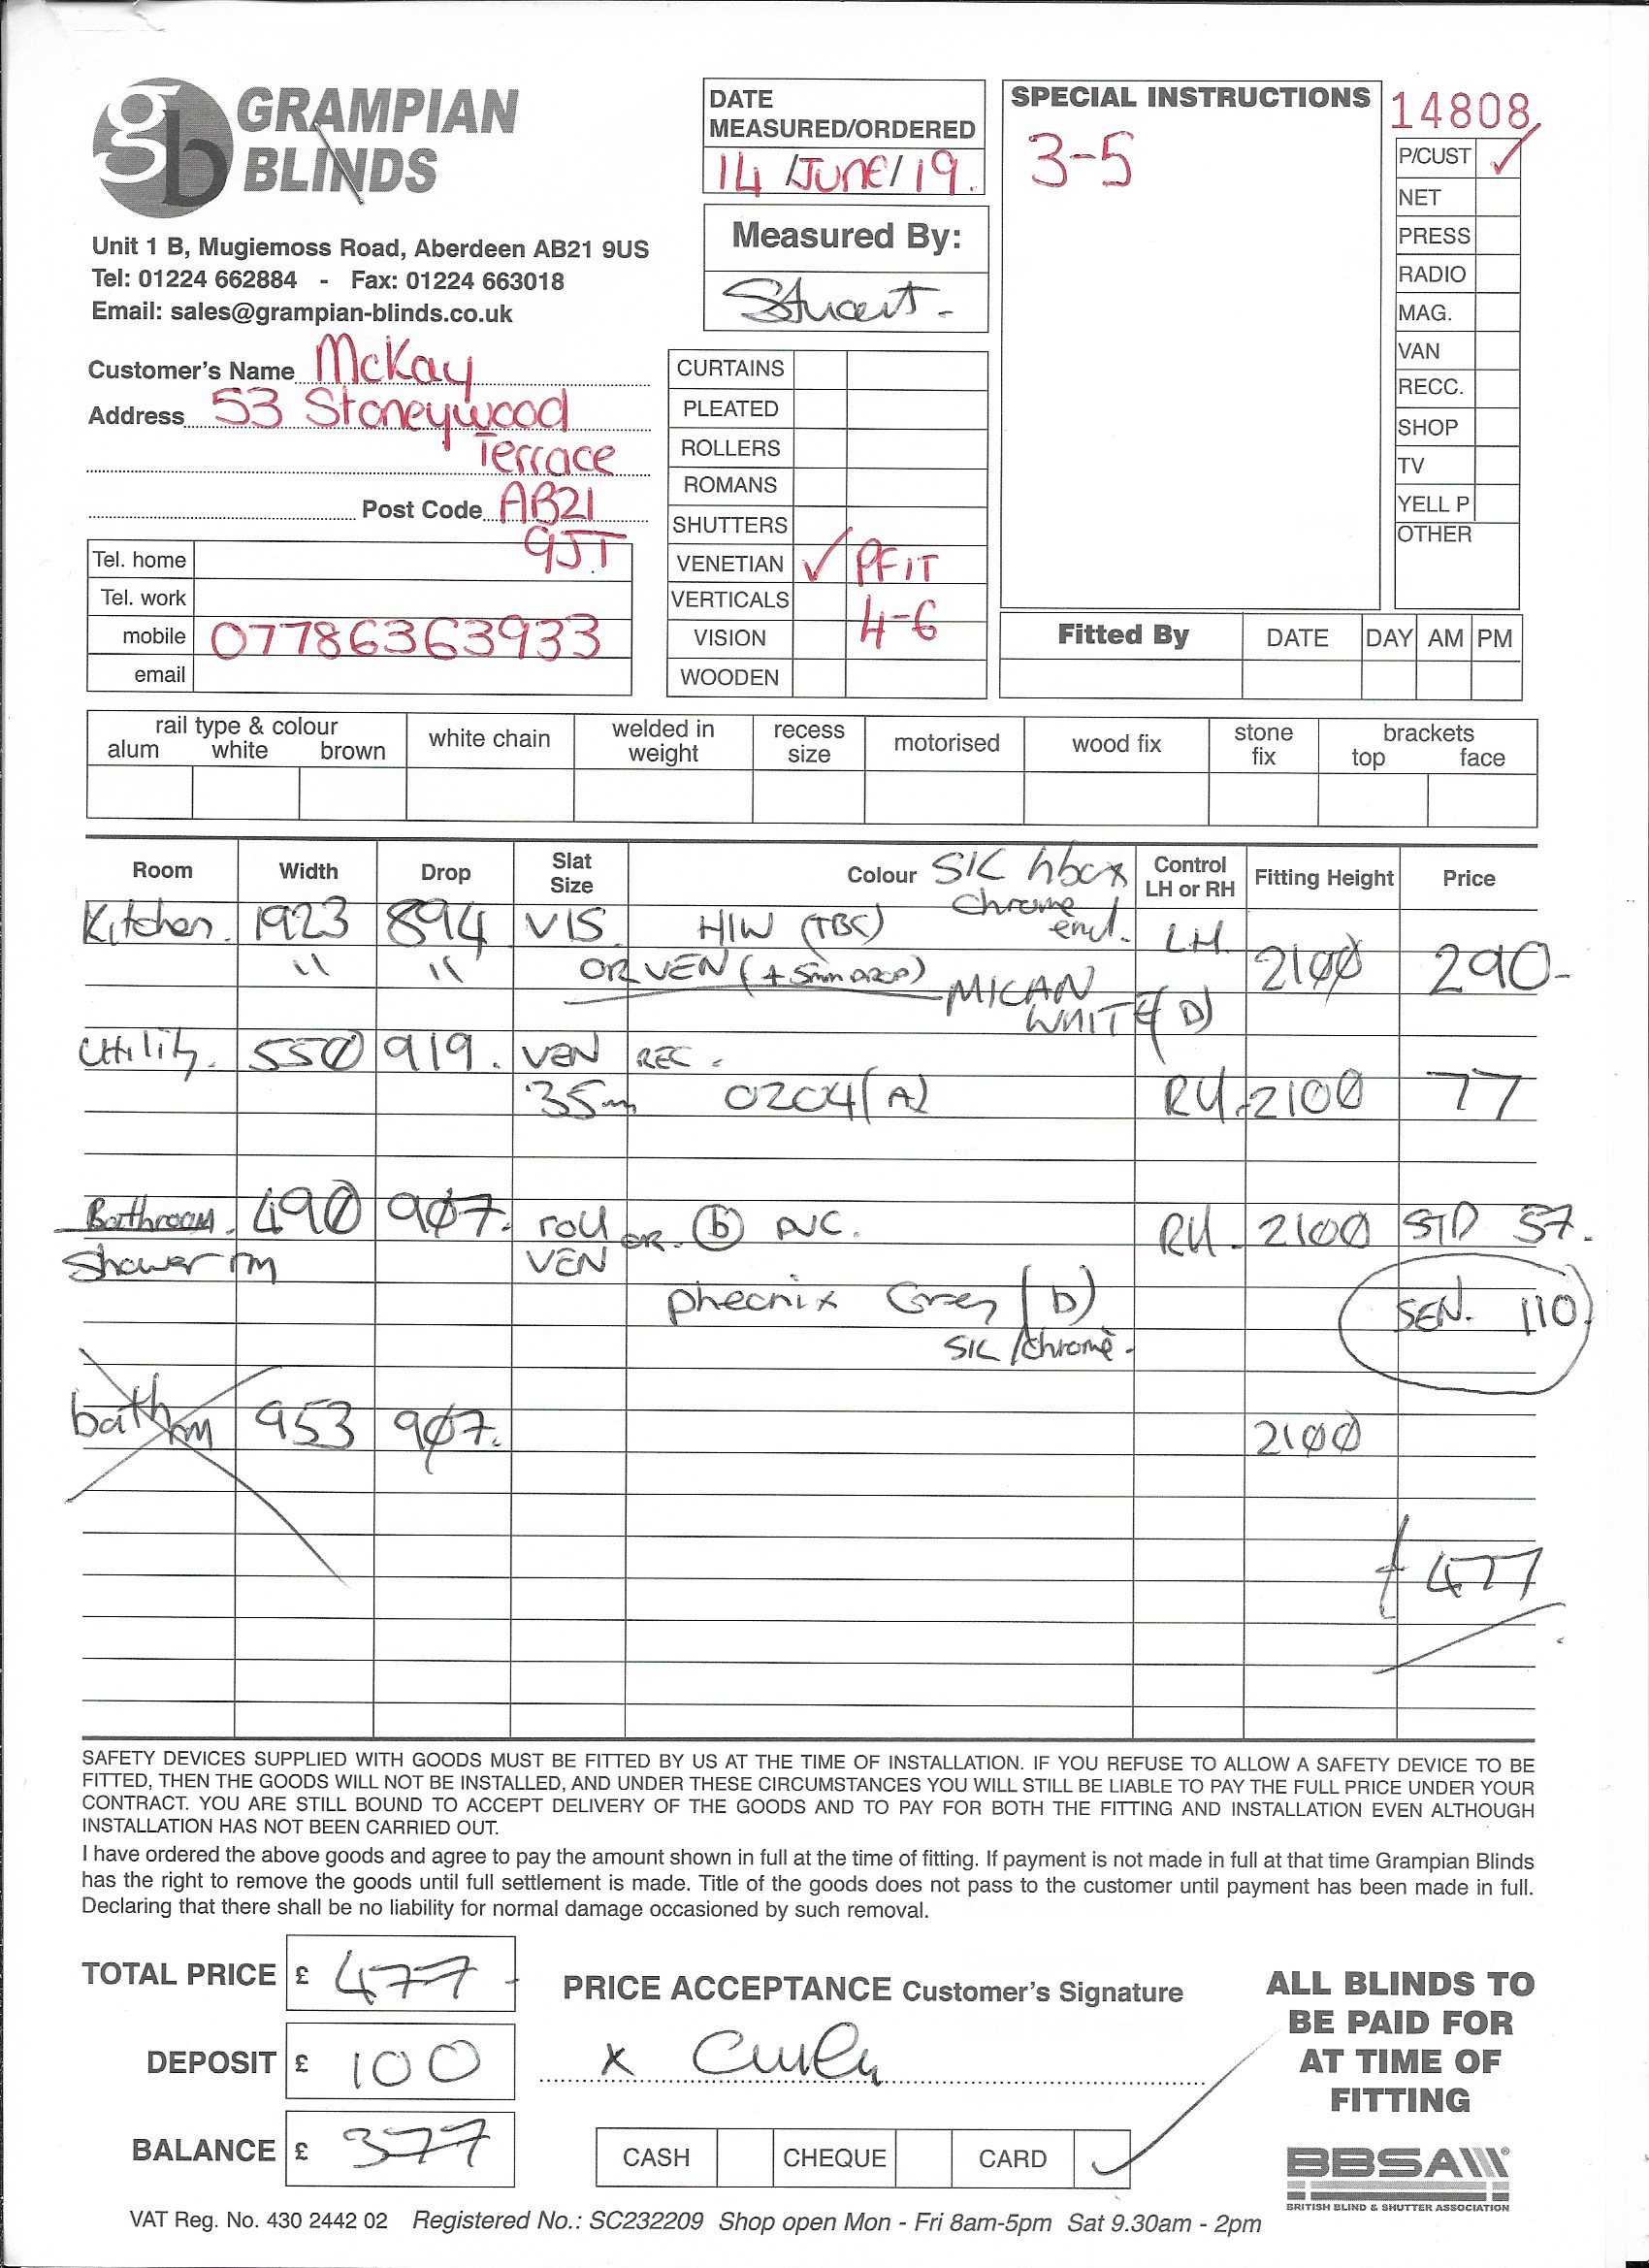 gb GRAMPIAN
BLINDS
Unit 1 B, Mugiemoss Road, Aberdeen AB21 9US
Tel: 01224 662884 - Fax: 01224 663018
Email: sales@grampian-blinds.co.uk
DATE
MEASURED/ORDERED
14/JUNE/19.
Measured By:
Stuart.
SPECIAL INSTRUCTIONS
3-5
14808
P/CUST ✓
NET
PRESS
RADIO
MAG.
VAN
RECC.
SHOP
TV
YELL P
OTHER
Customer's Name McKay
Address 53 Stoneywood
Terrace
Post Code AB21
9JT
Tel. home
Tel. work
mobile 07786363933
email
CURTAINS
PLEATED
ROLLERS
ROMANS
SHUTTERS
VENETIAN ✓ PFIT
VERTICALS
VISION 4-6
WOODEN
Fitted By DATE DAY AM PM
rail type & colour
alum white brown
white chain
welded in
weight
recess
size
motorised
wood fix
stone
fix
brackets
top face
Room Width Drop Slat
Size Colour SIL hbox Control
LH or RH Fitting Height Price
chrome
end.
Kitchen. 1923 894 VIS HIW (TBC) LH 2100 290-
" " OR VEN (+ 5mm DROP) MICAN
WHITE (D)
Utility. 550 919. VEN REC.
35m 0204 (A) RH. 2100 77
Bathroom. 490 907. roll or (b) PVC. RH. 2100 STD 57.
Shower rm VEN
phoenix Grey (b) SEN. 110
SIL/chrome.
bath rm 953 907. 2100
£477
SAFETY DEVICES SUPPLIED WITH GOODS MUST BE FITTED BY US AT THE TIME OF INSTALLATION. IF YOU REFUSE TO ALLOW A SAFETY DEVICE TO BE
FITTED, THEN THE GOODS WILL NOT BE INSTALLED, AND UNDER THESE CIRCUMSTANCES YOU WILL STILL BE LIABLE TO PAY THE FULL PRICE UNDER YOUR
CONTRACT. YOU ARE STILL BOUND TO ACCEPT DELIVERY OF THE GOODS AND TO PAY FOR BOTH THE FITTING AND INSTALLATION EVEN ALTHOUGH
INSTALLATION HAS NOT BEEN CARRIED OUT.
I have ordered the above goods and agree to pay the amount shown in full at the time of fitting. If payment is not made in full at that time Grampian Blinds
has the right to remove the goods until full settlement is made. Title of the goods does not pass to the customer until payment has been made in full.
Declaring that there shall be no liability for normal damage occasioned by such removal.
TOTAL PRICE £ 477-
DEPOSIT £ 100
BALANCE £ 377
PRICE ACCEPTANCE Customer's Signature
x
CASH CHEQUE CARD ✓
ALL BLINDS TO
BE PAID FOR
AT TIME OF
FITTING
BBSA
BRITISH BLIND & SHUTTER ASSOCIATION
VAT Reg. No. 430 2442 02 Registered No.: SC232209 Shop open Mon - Fri 8am-5pm Sat 9.30am - 2pm